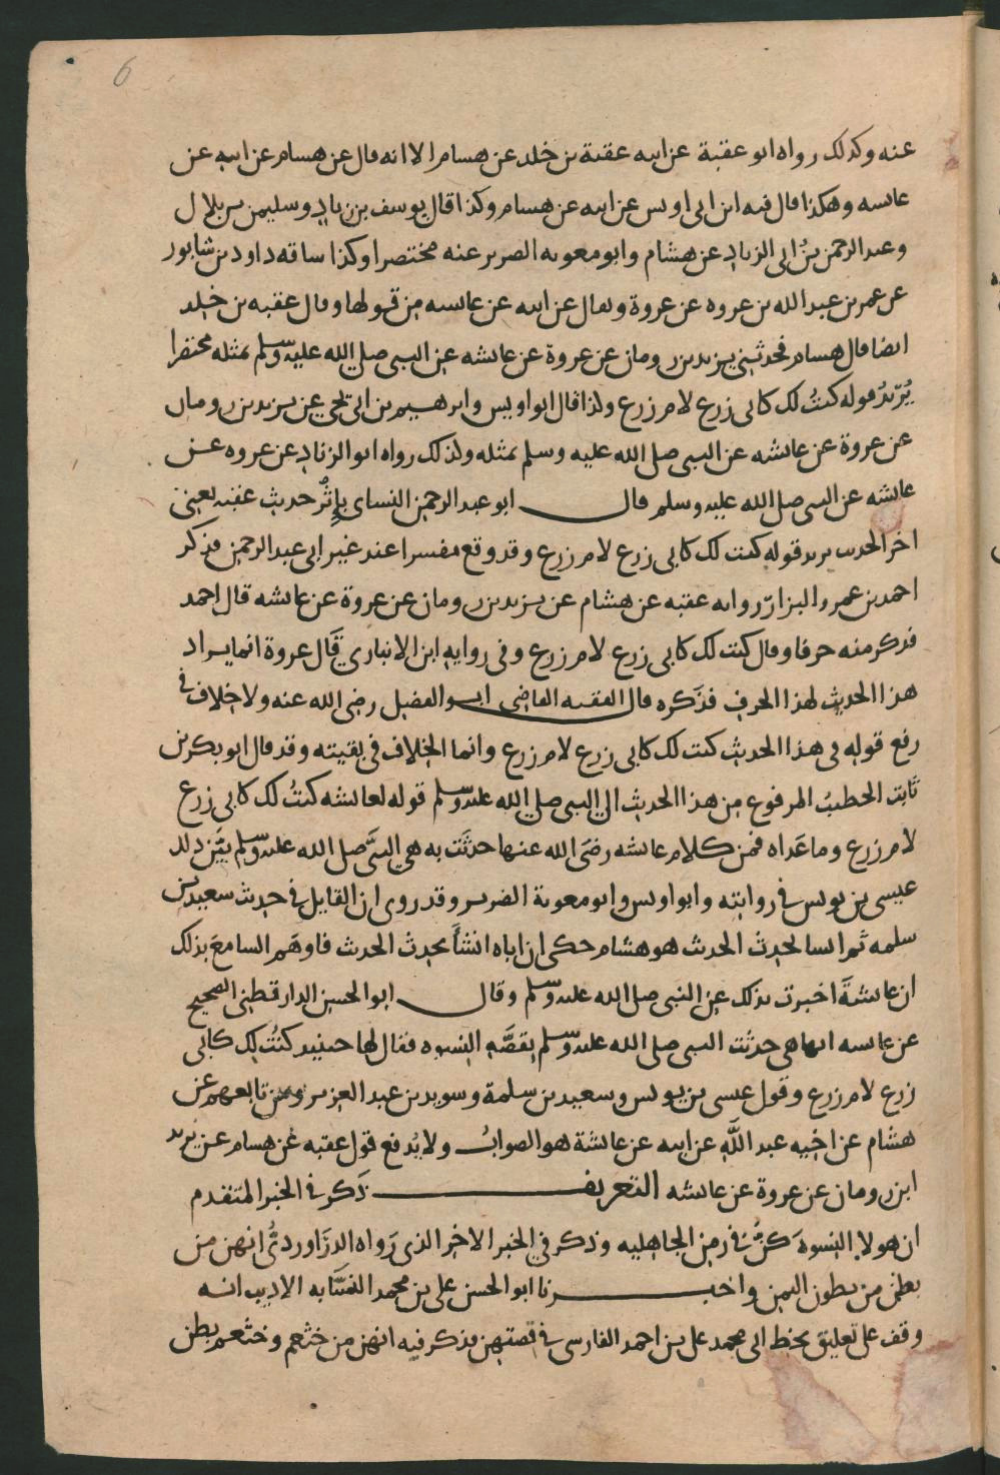 6
عنه وكذلك رواه ابو عقبة عن ابيه عقبة بن خلد عن هسام الا انه قال عن هسام عن ابيه عن
عائسه وهكذا قال فيه ابن ابي اويس عن ابيه عن هسام وكذا قال يوسف بن زياد وسليمن بن بلال
وعبد الرحمن بن ابي الزناد عن هشام وابو معويه الضرير عنه مختصرا وكذا ساقه داود بن شابور
عن عمر بن عبد الله بن عروه عن عروة وىقال عن ابيه عن عائسه من قولها وقال عقبه بن خلد
ايضا قال هسام فحدثني يزيد بن رومان عن عروة عن عائشه عن النبى صلى الله عليه وسلم بمثله مختصرا
يُرىدُ قوله كنتُ لك كابى زرع لام زرع وكذا قال ابو اويس وابرهيم بن ابي يحيى عن يزيد بن رومان
عن عروة عن عائشه عن النبى صلى الله عليه وسلم بمثله وكذلك رواه ابو الزناد عن عروه عن
عائشه عن النبى صلى الله عليه وسلم قال ابو عبد الرحمن النساى بإثر حديث عقبه يعنى
اخر الحديث يريد قوله كنت لك كابى زرع لام زرع وقد وقع مفسرا عند غير ابى عبد الرحمن فذكر
احمد بن عمرو البزار روايه عقبه عن هشام عن يزيد بن رومان عن عروة عن عائشه قال احمد
فذكر منه حرفا وقال كنت لك كابى زرع لام زرع وفى روايه ابن الانبارى قال عروة انما يراد
هذا الحديث لهذا الحرف فذكره قال الفقيه القاضى ابو الفضل رضى الله عنه ولا خلاف فى
رفع قوله فى هذا الحديث كنت لك كابى زرع لام زرع وانما الخلاف فى بقيته وقد قال ابو بكر بن
ثابت الخطيبُ المرفوع من هذا الحديث الى النبى صلى الله عليه وسلم قوله لعائشه كنتُ لك كابى زرع
لام زرع وما عَداه فمن كلام عائشه رضى الله عنها حدثَت به هى النبىَّ صلى الله عليه وسلم بيَّن ذلك
عيسى بن يونس فى روايته وابو اويس وابو معوية الضرير وقد روى ان القايل فى حديث سعيد بن
سلمه ثم انسا لحديث الحديث هو هشام حكى ان اباه انشأَ بحديث الحديث فاوهَم السامعَ بذلك
ان عائشةَ اخبرت بذلك عن النبى صلى الله عليه وسلم وقال ابو الحسن الدارقطنى الصحيح
عن عائسه انها هى حدثت النبى صلى الله عليه وسلم بقصَّه النسوه فقال لها حينيذ كنتُ لك كابى
زرع لام زرع وقول عيسى بن يونس وسعيد بن سلمة وسويد بن عبد العزيز ومن تابعهم عن
هشام عن اخيه عبد اللَّه عن ابيه عن عائشة هو الصوابُ ولا يُدفع قول عقبه عن هسام عن يزيد
ابن رومان عن عروة عن عائشه التعريف ذَكر فى الخبر المتقدم
ان هولاء النسوةَ كُنَّ فى زمن الجاهليه وذكر فى الخبر الاخر الذى رَواه الدرَاوردىُّ انهن من
بطن من بطون اليمن واخبرنا ابو الحسن على بن محمد النسَّابه الاديب انه
وقف على تعليق بخط ابى محمد على بن احمد الفارسى فى قصتهن فذكر فيه انهن من خثعم وخثعم بطن